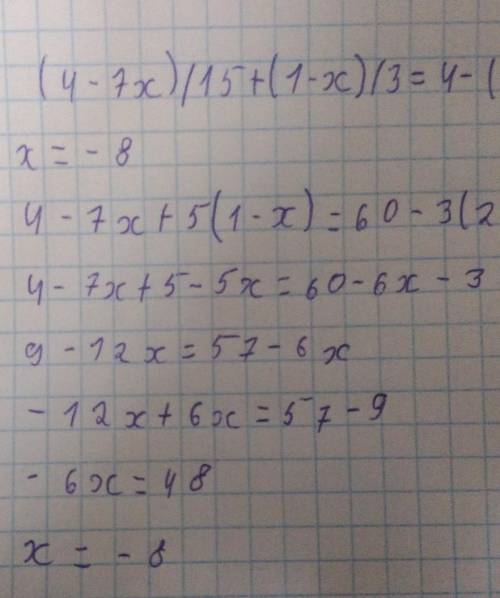 (4-7x)/15+(1-x)/3=4-(
x=-8
4-7x+5(1-x)=60-3(2
4-7x+5-5x=60-6x-3
9-12x=57-6x
-12x+6x=57-9
-6x=48
x=-8